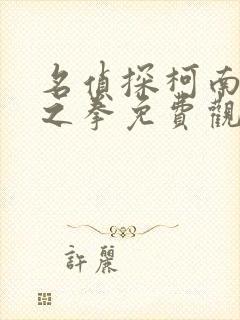 名偵探柯南
之拳免費觀
許麗